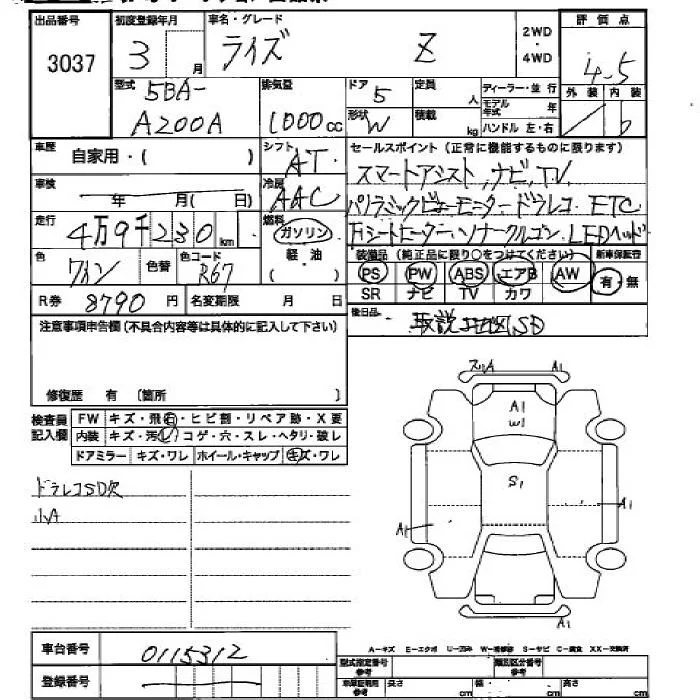 出品番号 初度登録年月 車名・グレード 2WD・4WD 評価点
3037 3 月 ライズ Z 4.5
型式 5BA-A200A 排気量 1000 cc ドア 5 定員 人 ディーラー・並行 外装 内装
形状 W 積載 kg モデル年式 年 ハンドル 左・右
車歴 自家用・( ) シフト AT
車検 年 月( 日) 冷房 AAC
走行 4万9千230 km 燃料 ガソリン
軽油
( )
色 ワイン 色替 色コード R67
R券 8790 円 名変期限 月 日
セールスポイント (正常に機能するものに限ります)
スマートアシスト,ナビ,TV
パノラミックビューモニター ドラレコ ETC
シートヒーター ソナー クルコン LEDヘッド
装備品 (純正品に限り○をつけてください) 新車保証書
PS PW ABS エアB AW 有・無
SR ナビ TV カワ
後日品 取説 SD
注意事項申告欄(不具合内容等は具体的に記入して下さい)
修復歴 有 〔箇所 〕
検査員記入欄 FW キズ・飛石・ヒビ割・リペア跡・X要
内装 キズ・汚レ・コゲ・穴・スレ・ヘタリ・破レ
ドアミラー キズ・ワレ ホイール・キャップ キズ・ワレ
ドラレコSD欠
小A
スリA A1
A1
W1
S1
A1
A1
A1
車台番号 0115312
登録番号
A-キズ E-エクボ U-凹み W-補修跡 S-サビ C-腐食 XX-交換済
型式指定番号 類別区分番号
車庫証明用参考 長さ cm 幅 参考 cm 高さ cm